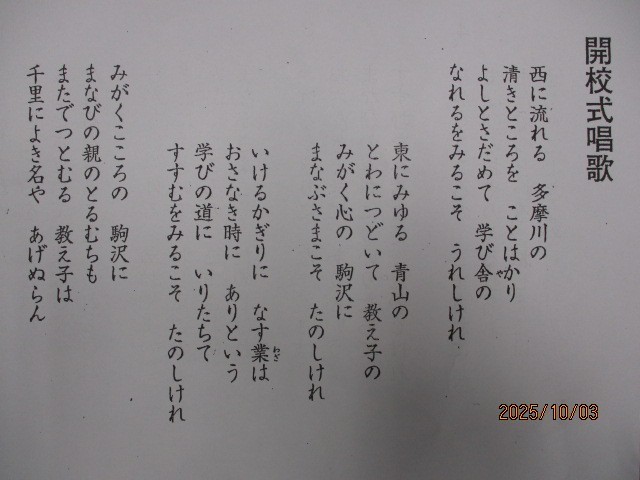 開校式唱歌
西に流れる　多摩川の
清きところを　ことはかり
よしとさだめて　学び舎の
や
なれるをみるこそ　うれしけれ
東にみゆる　青山の
とわにつどいて　教え子の
みがく心の　駒沢に
まなぶさまこそ　たのしけれ
いけるかぎりに　なす業は
わざ
おさなき時に　ありという
学びの道に　いりたちて
すすむをみるこそ　たのしけれ
みがくこころの　駒沢に
まなびの親のとるむちも
またでつとむる　教え子は
千里によき名や　あげぬらん
2025/10/03